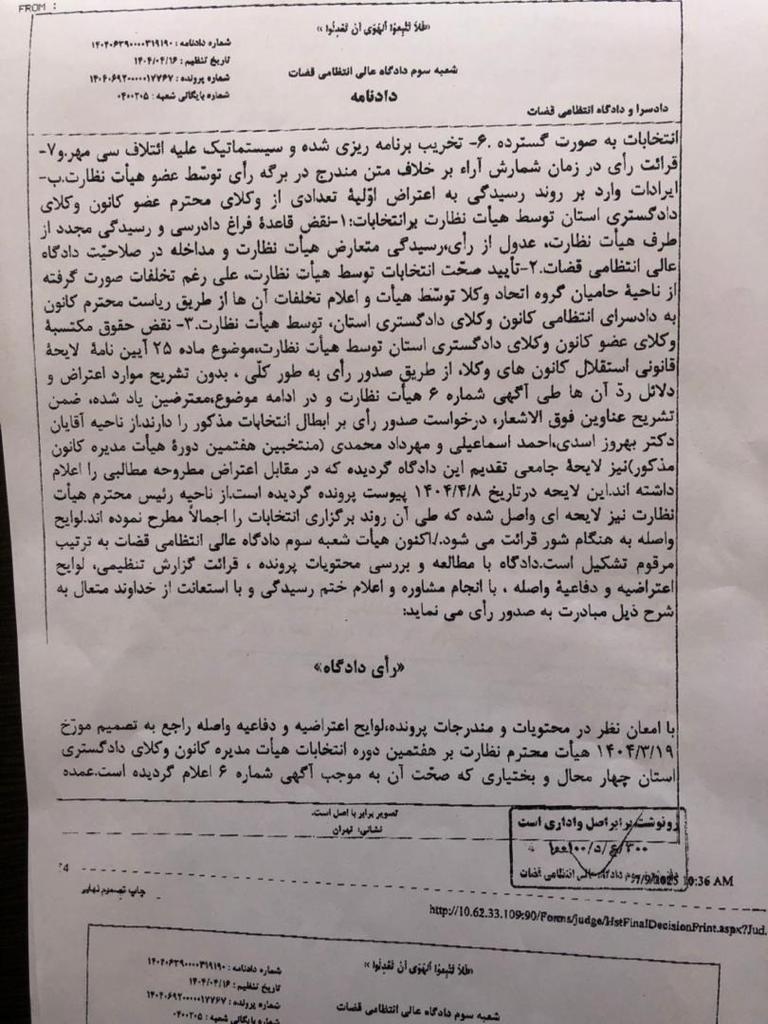 FROM :
«فَلا تَتَّبِعُوا الْهَوَىٰ أَنْ تَعْدِلُوا»
شماره دادنامه : ۱۴۰۴۰۶۳۹۰۰۰۰۳۱۹۱۹۰
تاریخ تنظیم : ۱۴۰۴/۰۴/۱۶
شعبه سوم دادگاه عالی انتظامی قضات
شماره پرونده : ۱۴۰۴۰۶۹۲۰۰۰۰۰۱۷۷۶۷
دادنامه
شماره بایگانی شعبه : ۰۴۰۰۲۰۵
دادسرا و دادگاه انتظامی قضات
انتخابات به صورت گسترده .۶- تخریب برنامه ریزی شده و سیستماتیک علیه ائتلاف سی مهر.و۷-
قرائت رأی در زمان شمارش آراء بر خلاف متن مندرج در برگه رأی توسّط عضو هیأت نظارت.ب-
ایرادات وارد بر روند رسیدگی به اعتراض اوّلیۀ تعدادی از وکلای محترم عضو کانون وکلای
دادگستری استان توسط هیأت نظارت برانتخابات:۱-نقض قاعدۀ فراغ دادرسی و رسیدگی مجدد از
طرف هیأت نظارت، عدول از رأی،رسیدگی متعارض هیأت نظارت و مداخله در صلاحیّت دادگاه
عالی انتظامی قضات.۲-تأیید صحّت انتخابات توسط هیأت نظارت، علی رغم تخلفات صورت گرفته
از ناحیۀ حامیان گروه اتحاد وکلا توسّط هیأت و اعلام تخلفات آن ها از طریق ریاست محترم کانون
به دادسرای انتظامی کانون وکلای دادگستری استان، توسط هیأت نظارت.۳- نقض حقوق مکتسبۀ
وکلای عضو کانون وکلای دادگستری استان توسط هیأت نظارت،موضوع ماده ۲۵ آیین نامۀ لایحۀ
قانونی استقلال کانون های وکلا، از طریق صدور رأی به طور کلّی ، بدون تشریح موارد اعتراض و
دلائل ردّ آن ها طی آگهی شماره ۶ هیأت نظارت و در ادامه موضوع،معترضین یاد شده، ضمن
تشریح عناوین فوق الاشعار، درخواست صدور رأی بر ابطال انتخابات مذکور را دارند.از ناحیه آقایان
دکتر بهروز اسدی،احمد اسماعیلی و مهرداد محمدی (منتخبین هفتمین دورۀ هیأت مدیره کانون
مذکور)نیز لایحۀ جامعی تقدیم این دادگاه گردیده که در مقابل اعتراض مطروحه مطالبی را اعلام
داشته اند.این لایحه درتاریخ ۱۴۰۴/۴/۸ پیوست پرونده گردیده است.از ناحیه رئیس محترم هیأت
نظارت نیز لایحه ای واصل شده که طی آن روند برگزاری انتخابات را اجمالاً مطرح نموده اند.لوایح
واصله به هنگام شور قرائت می شود./اکنون هیأت شعبه سوم دادگاه عالی انتظامی قضات به ترتیب
مرقوم تشکیل است.دادگاه با مطالعه و بررسی محتویات پرونده ، قرائت گزارش تنظیمی، لوایح
اعتراضیه و دفاعیۀ واصله ، با انجام مشاوره و اعلام ختم رسیدگی و با استعانت از خداوند متعال به
شرح ذیل مبادرت به صدور رأی می نماید:
«رأی دادگاه»
با امعان نظر در محتویات و مندرجات پرونده،لوایح اعتراضیه و دفاعیه واصله راجع به تصمیم مورّخ
۱۴۰۴/۳/۱۹ هیأت محترم نظارت بر هفتمین دوره انتخابات هیأت مدیره کانون وکلای دادگستری
استان چهار محال و بختیاری که صحّت آن به موجب آگهی شماره ۶ اعلام گردیده است.عمده
تصویر برابر با اصل است.
نشانی: تهران
رونوشت برابر اصل واداری است
سوم دادگاه عالی انتظامی قضات
7/9/2025 10:36 AM
چاپ تصمیم نهایی
http://10.62.33.109:90/Forms/judge/HstFinalDecisionPrint.aspx?Jud.
«فَلا تَتَّبِعُوا الْهَوَىٰ أَنْ تَعْدِلُوا»
شماره دادنامه : ۱۴۰۴۰۶۳۹۰۰۰۰۳۱۹۱۹۰
تاریخ تنظیم : ۱۴۰۴/۰۴/۱۶
شعبه سوم دادگاه عالی انتظامی قضات
شماره پرونده : ۱۴۰۴۰۶۹۲۰۰۰۰۰۱۷۷۶۷
شماره بایگانی شعبه : ۰۴۰۰۲۰۵